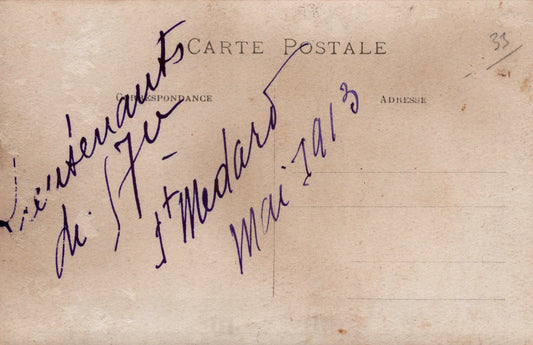 CARTE POSTALE
33
CORRESPONDANCE
ADRESSE
Lieutenants
du 57e
St Medard
Mai 1913